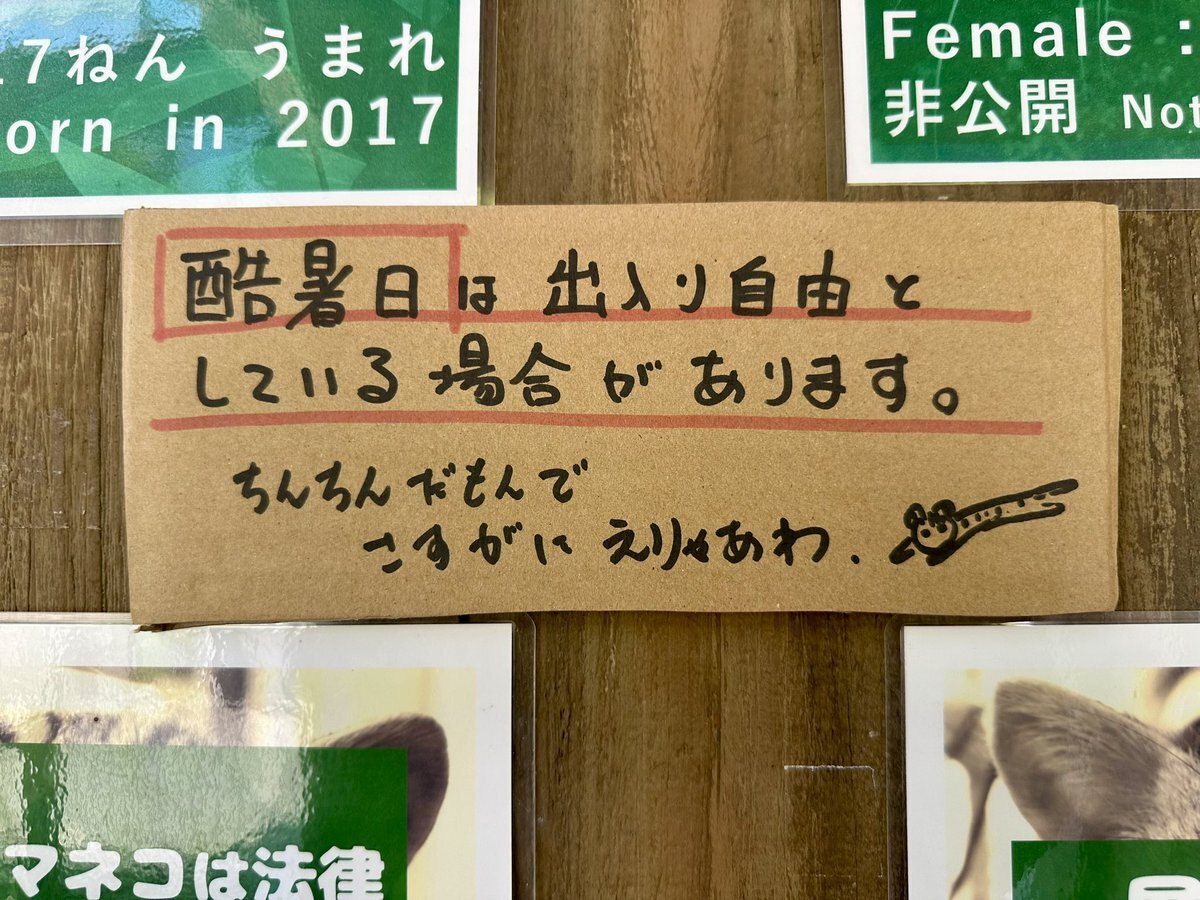 7ねん うまれ
orn in 2017
Female :
非公開 Not
酷暑日は 出入り自由と
している場合があります。
ちんちんだもんで
こすがに えりゃあわ.
マネコは法律